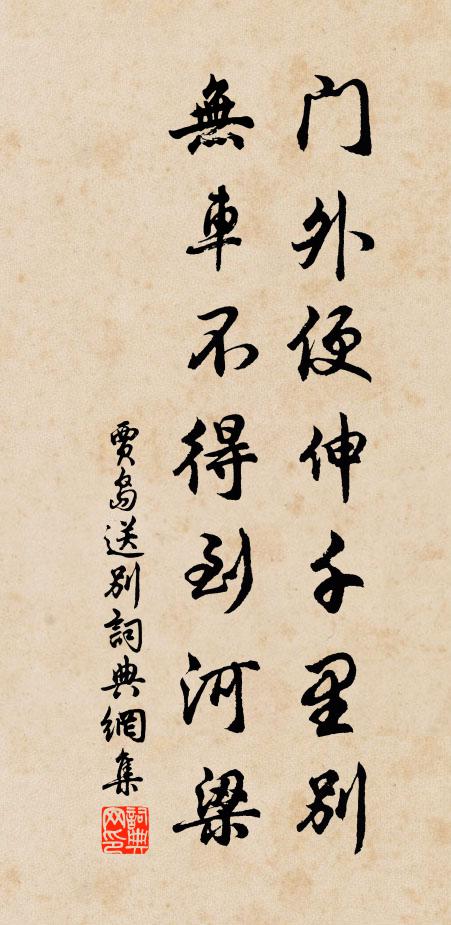 门外便伸千里别
無車不得到河梁
賈島送别詞典網集
詞典网印